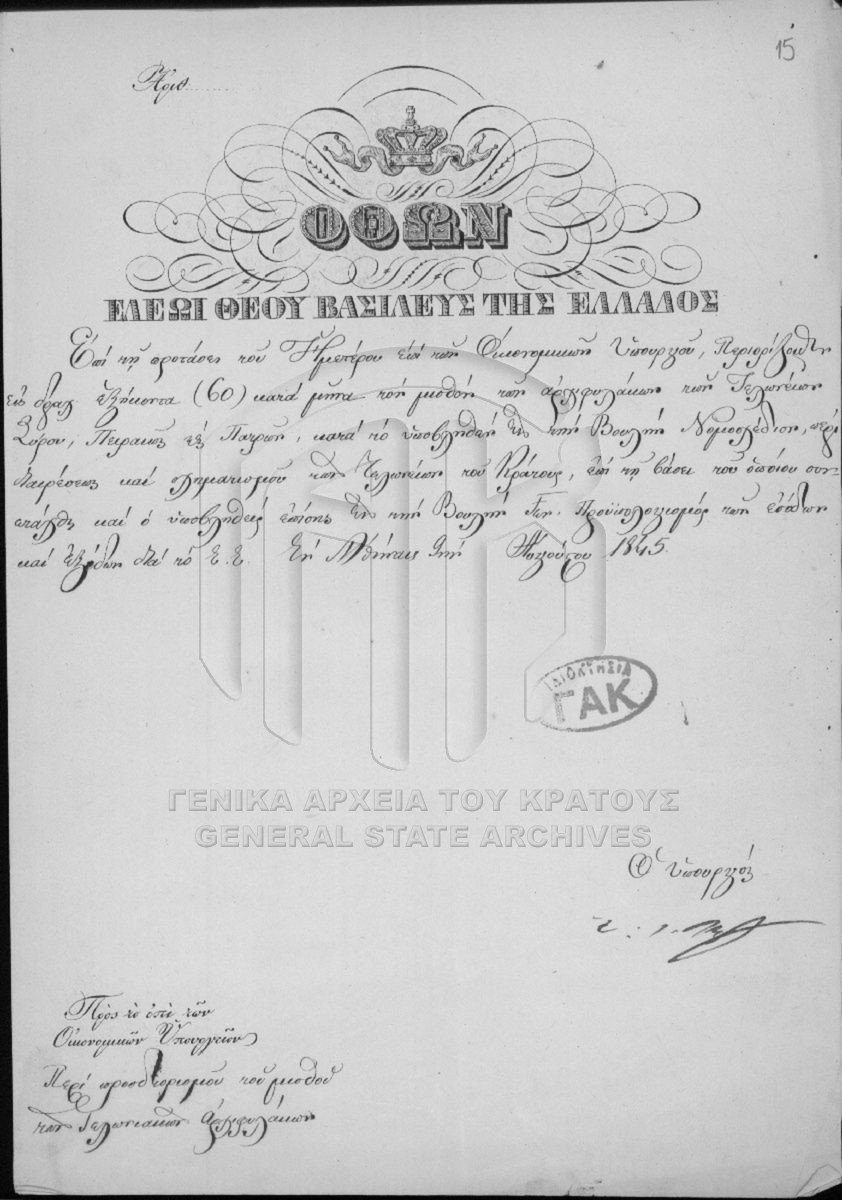 15
Ἀριθ.
ΟΘΩΝ
ΕΛΕΩΙ ΘΕΟΥ ΒΑΣΙΛΕΥΣ ΤΗΣ ΕΛΛΑΔΟΣ
Ἐπὶ τῇ προτάσει τοῦ Ἡμετέρου ἐπὶ τῶν Οἰκονομικῶν Ὑπουργοῦ, Περιορίζομεν
εἰς δραχ. ἑξήκοντα (60) κατὰ μῆνα τὸν μισθὸν τῶν ἀρχιφυλάκων τῶν Τελωνείων
Σύρου, Πειραιῶς καὶ Πατρῶν, κατὰ τὸ ὑποβληθὲν εἰς τὴν Βουλὴν Νομοσχέδιον, περὶ
διαιρέσεως καὶ σχηματισμοῦ τῶν Τελωνείων τοῦ Κράτους, ἐπὶ τῇ βάσει τοῦ ὁποίου συν-
ετάχθη καὶ ὁ ὑποβληθεὶς ἐπίσης εἰς τὴν Βουλὴν Γεν. Προϋπολογισμὸς τῶν ἐσόδων
καὶ ἐξόδων διὰ τὸ ἔ. ἔ. Ἐν Ἀθήναις τὴν Αὐγούστου 1845.
ΙΔΙΟΚΤΗΣΙΑ
ΓΑΚ
ΓΕΝΙΚΑ ΑΡΧΕΙΑ ΤΟΥ ΚΡΑΤΟΥΣ
GENERAL STATE ARCHIVES
Ὁ Ὑπουργὸς
Πρὸς τὸ ἐπὶ τῶν
Οἰκονομικῶν Ὑπουργεῖον
Περὶ προσδιορισμοῦ τοῦ μισθοῦ
τῶν Τελωνιακῶν ἀρχιφυλάκων